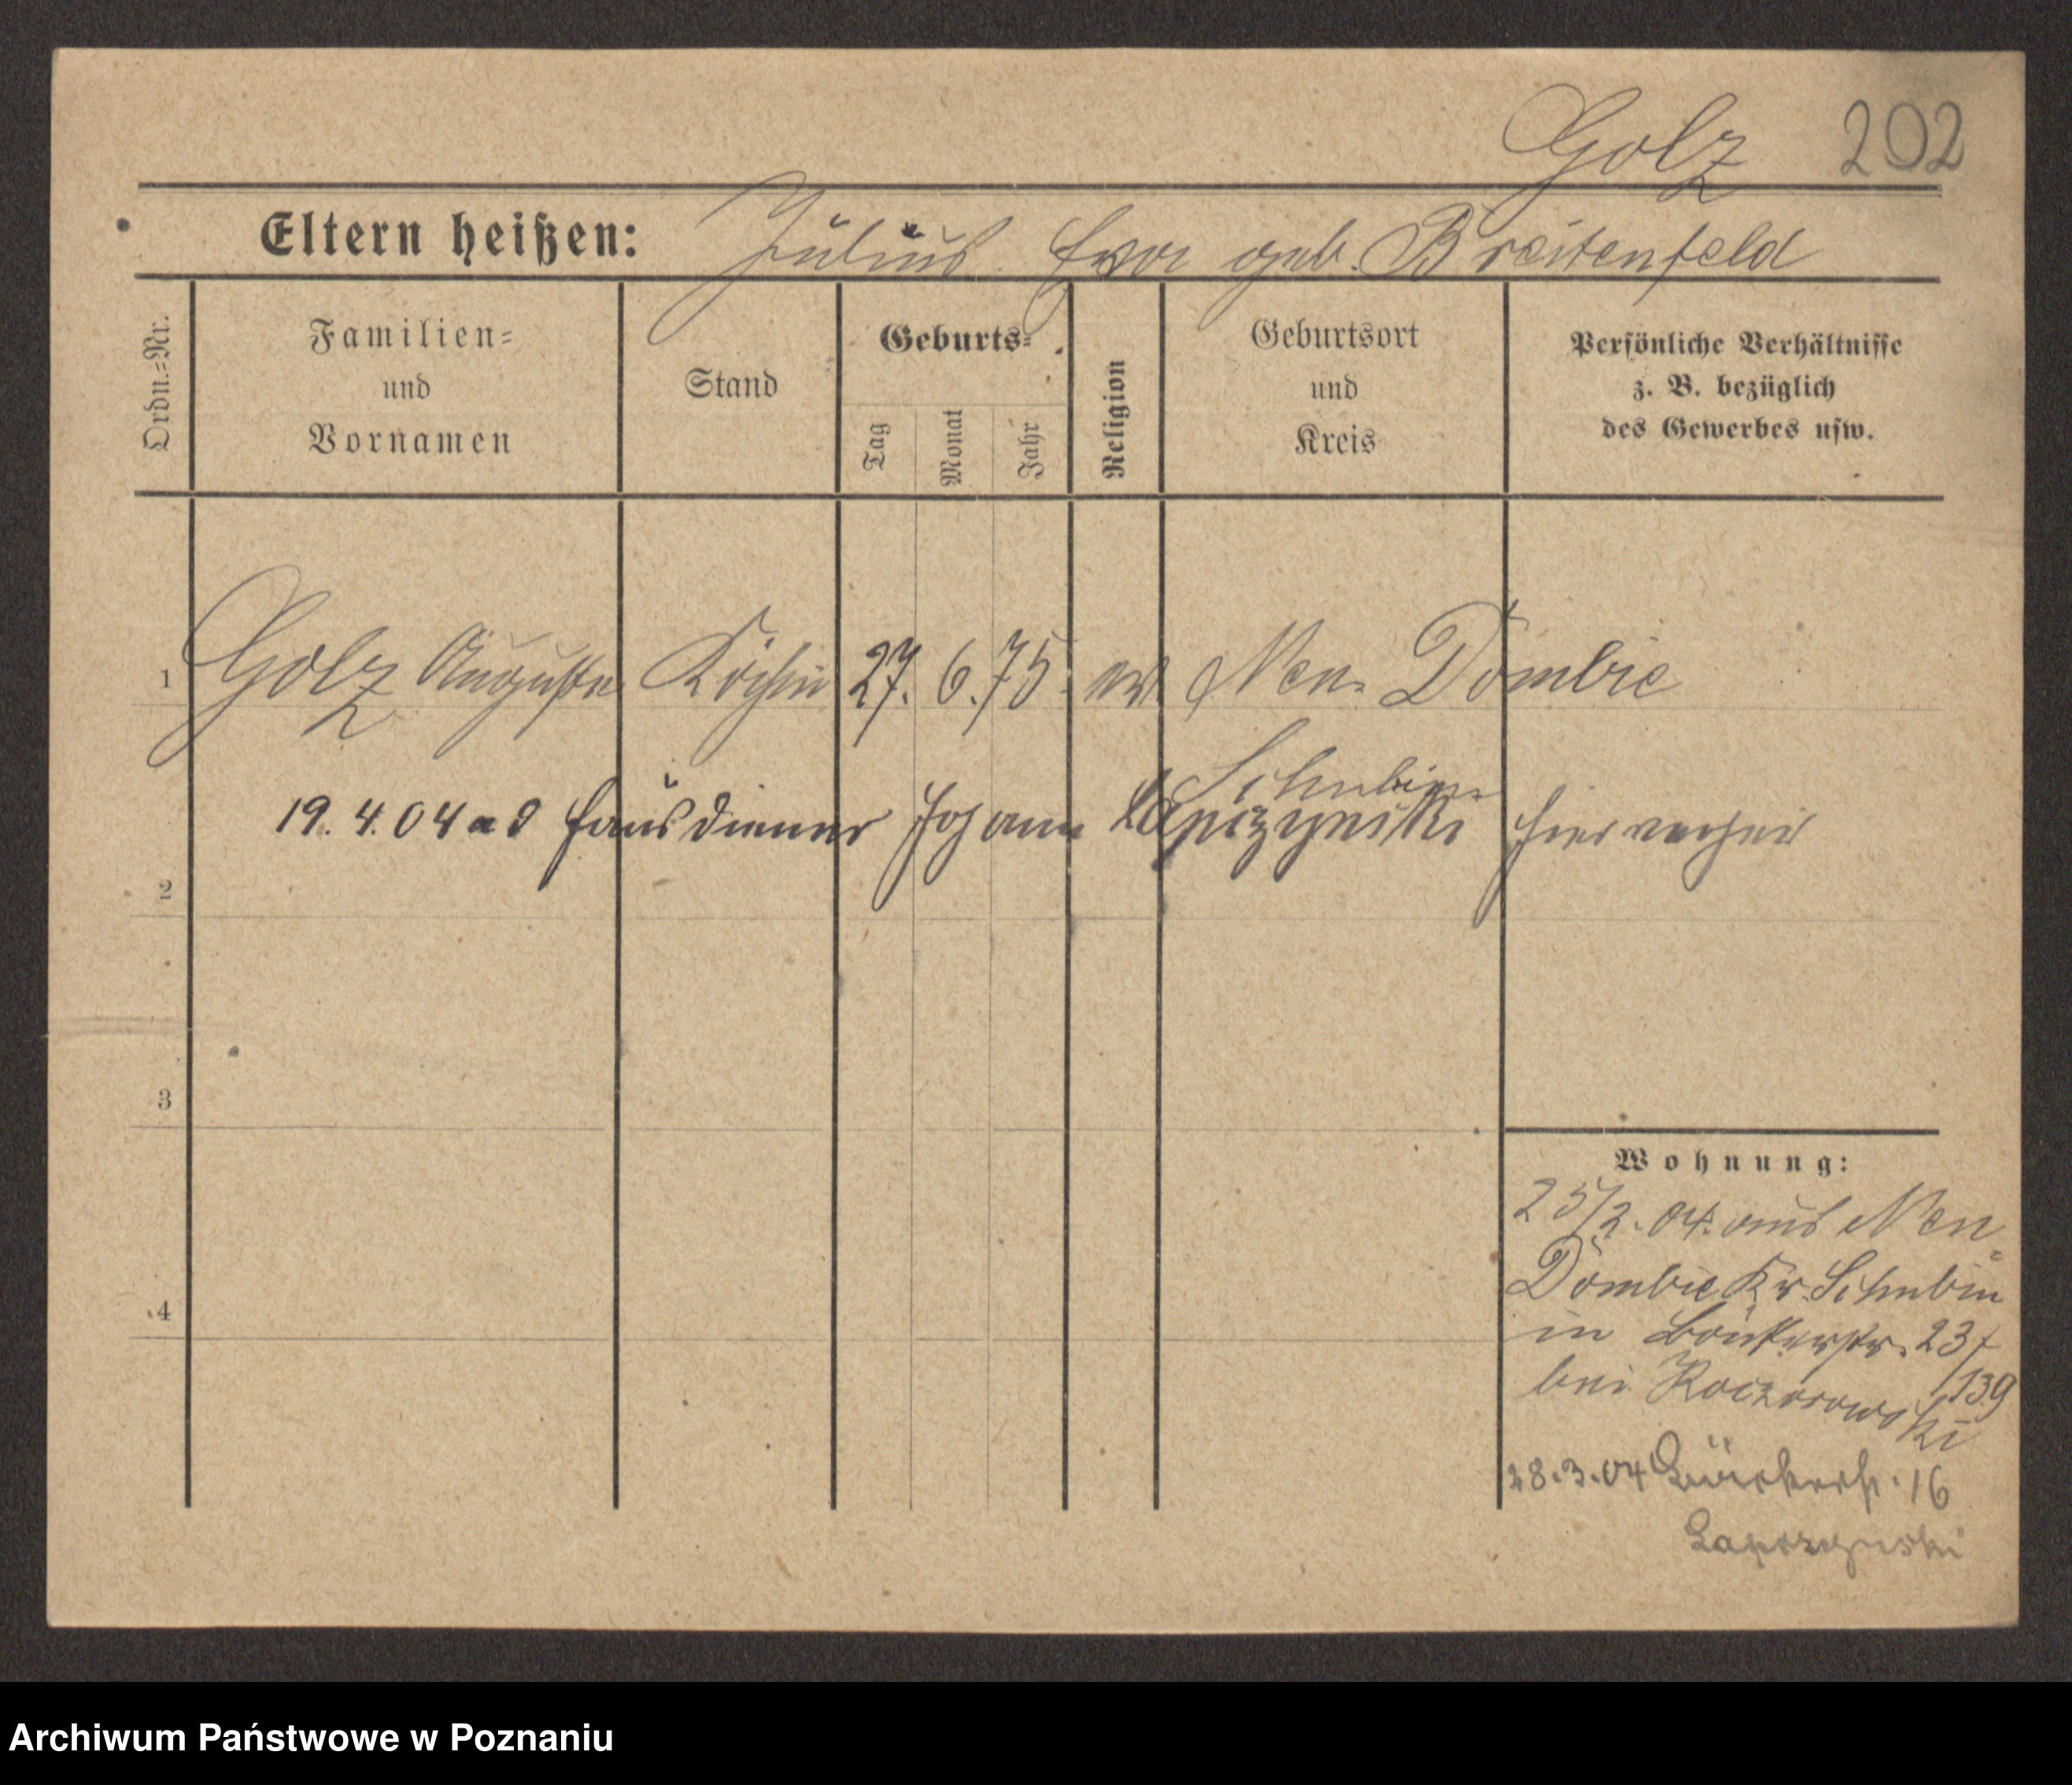 Golz 202
Eltern heißen: Julius. Eva geb. Breitenfeld
Ordn.=Nr.
Familien=
und
Vornamen
Stand
Geburts=
Tag
Monat
Jahr
Religion
Geburtsort
und
Kreis
Persönliche Verhältnisse
z. B. bezüglich
des Gewerbes usw.
1 Golz Auguste Köchin 27. 6. 75. ev Neu-Dombie
Schubin
19. 4. 04 ad Hausdiener Johann Lapczynski hier verheir
2
3
4
Wohnung:
25/2. 04. aus Neu
Dombie Kr. Schubin
in 23/
bei Koczorowski 139
28. 3. 04 16
Lapczynski
Archiwum Państwowe w Poznaniu